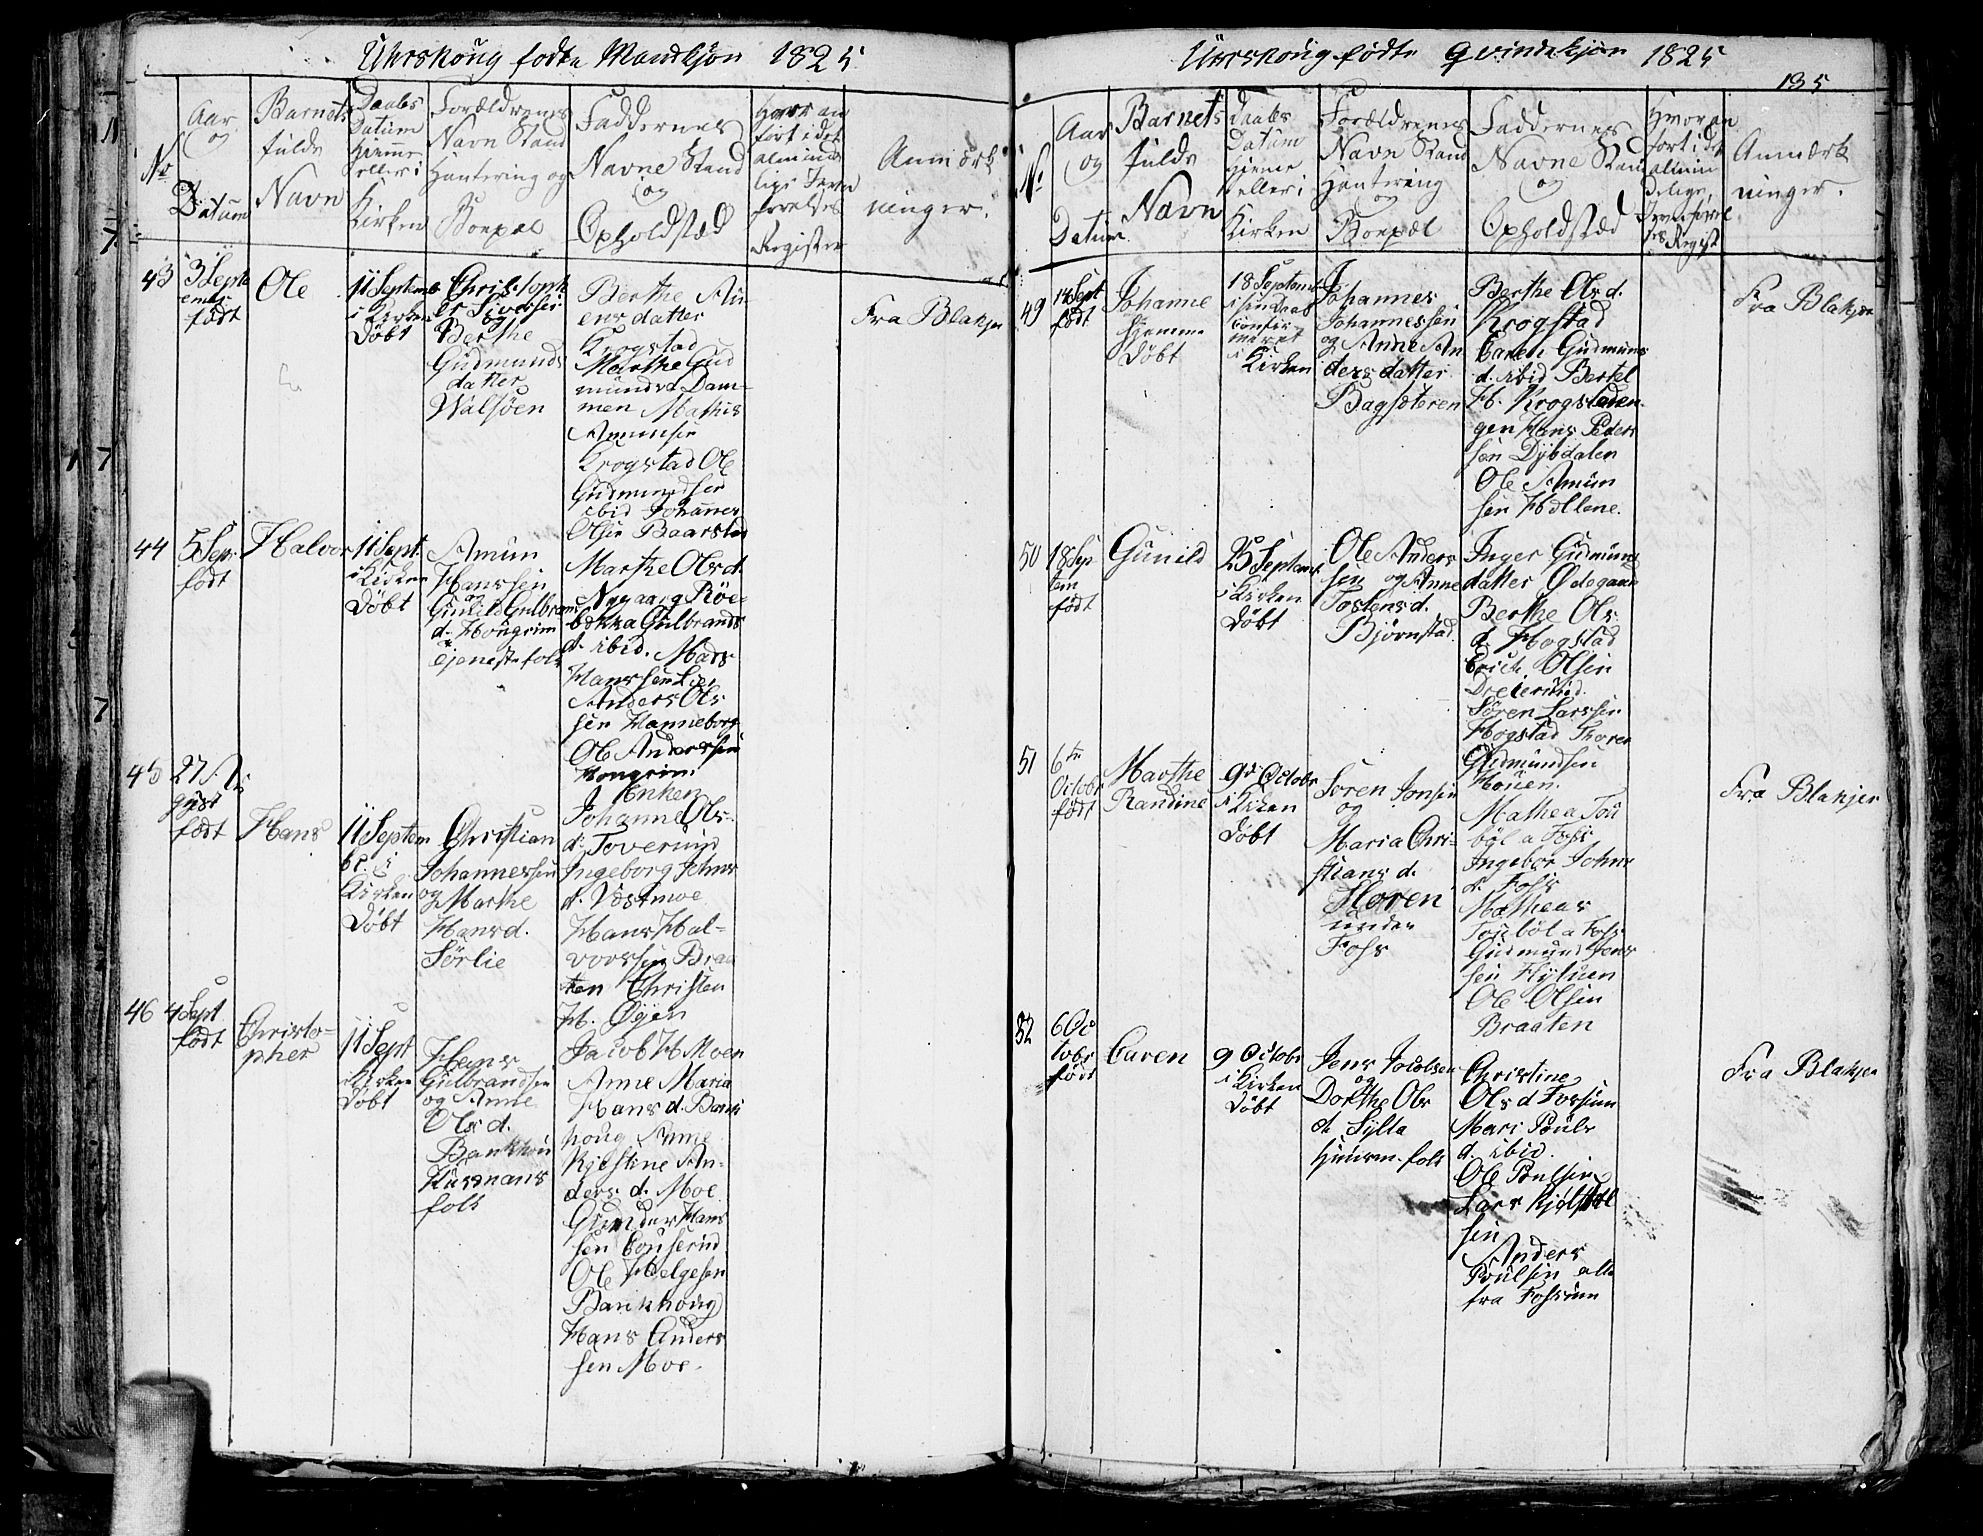 Uhrskoug fødte Mandkjøn 1825
No
Aar
og
Datum
Barnets
fulde
Navn
Daabs
Datum
Hiemme
eller i
Kirken
Forældrenes
Navn Stand
Hantering og
Boepæl
Faddernes
Navne Stand
og
Opholdstæd
Hvor an
ført i det
alminde
lige
Register
Anmærk
ninger.
43
3 Septe
ember
født
Ole
11 Septem
i Kirken
Døbt
Christoph
er Siversen
og
Berthe
Gudmunds
datter
Walsøen
Berthe Am
ens datter
Krogstad
Marthe Gud
mundsd Dam-
men Mathis
Amunsen
Krogstad Ole
Gudmundsen
ibid Johannes
Olsen Baarstad
Fra Blakjer
44
5 Sep.
født
Halvor
11 Sept.
i Kirken
Døbt
Amun
Hanssen
og
Gunild Gulbrans
d. Hougrim
Tjenestefolk
Marthe Ols d.
Nygaard Røe-
Gulbrands
d. ibid. Mads
Hanssen Lie
Anders Ols
sen Hanneborg
Ole Anderssen
Hougrim
45
27 Au
gust
født
Hans
11 Septem
br i
Kirken
Døbt
Christian
Johannessen
og Marthe
Hansd.
Sørlie
Enken
Johanne Ols
d. Toverud
Ingeborg Johns
d. Vestmoe
Hans Hal-
vorssen Braa
ten Christen
H. Øyen
46
4 Sept
født
Christo-
pher
11 Sept
i Kirken
Døbt
Hans
Gulbrandsen
og Anne
Ols d.
Bankhou
Husmans
folk
Jacob H Moen
Anne Maria
Hans d. Bank
houg Anne
Kjestine An-
ders. d. Moe
Gunder Hans
sen Couserud
Ole Helgesen
Bankhoug
Hans Anders
sen Moe.
Uhrskoug fødte Qvindekjøn 1825
135
No
Aar
og
Datum
Barnets
fulde
Navn
Daabs
Datum
Hieme
eller i
Kirken
Forældrenes
Navn Stand
Hantering
og
Boepæl
Faddernes
Navne Stand
og
Opholdstæd
Hvor an
ført i det
almin
delige
Regist
Anmærk
ninger.
49
14 Sept
født
Johanne
hjemme
Døbt
18 Septem
i
confir
meret
i
Kirken
Johannes
Johannessen
og Anne An
ders datter
Bagsæteren
Berthe Ols d.
Krogstad
Caren Gudmuns
d. ibid Bertel
H. Krogstaden
gen Hans Peder
sen Dybdalen
Ole Amun
sen Hollene.
Fra Blakjer
50
18 Sep
tem
født
Gunild
25 Septemb
i Kirken
Døbt
Ole Anders
sen og Anne
Tostensd.
Bjørnstad
Inger Gudmuns
datter Ødegaard
Berthe Ols
d. Hogstad
Erich Olsen
Dreierud
Søren Larssen
Hogstad Thoren
Gudmundsen
Houen.
51
6te
Octobr
født
Marthe
Randine
9d Octobr
i Kirken
Døbt
Søren Jonsen
og
Maria Chri-
stians d.
Horen
under
Foss
Mathea Tou
bøl a Foss
Ingebor Johns
d. Foss
Matheas
Toubøl a Foss
Gudmund Jens
sen
Ole Olsen
Braaten
Fra Blakjer
52
6 Oc
tobr
født
Caren
9 Octobr
i Kirken
Døbt
Jens Jacobsen
og
Dorthe Ols
d. Sylta
Huusm. folk
Christine
Ols d Fossum
Mari Pouls
d. ibid.
Ole Poulsen
Lars
sen
Anders
Poulsen alle
fra Fossum
Fra Blakjer